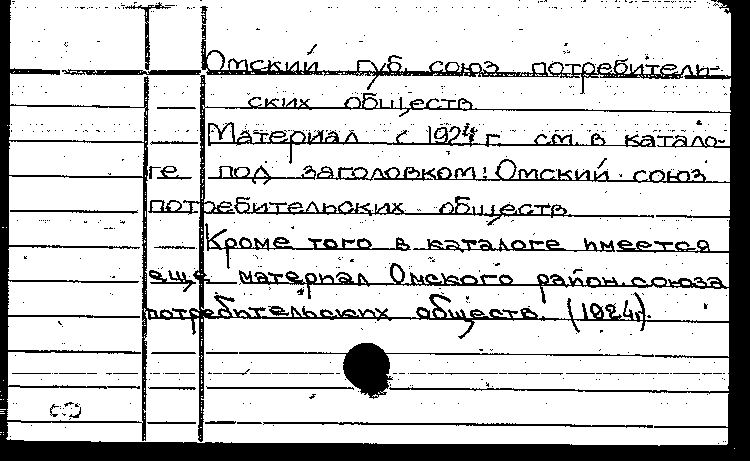 Омский губ. союз потребитель-
ских обществ
Материал с 1924 г. см. в катало-
ге под заголовком: Омский союз
потребительских обществ
Кроме того в каталоге имеется
еще материал Омского район. союза
потребительских обществ. (1924г).